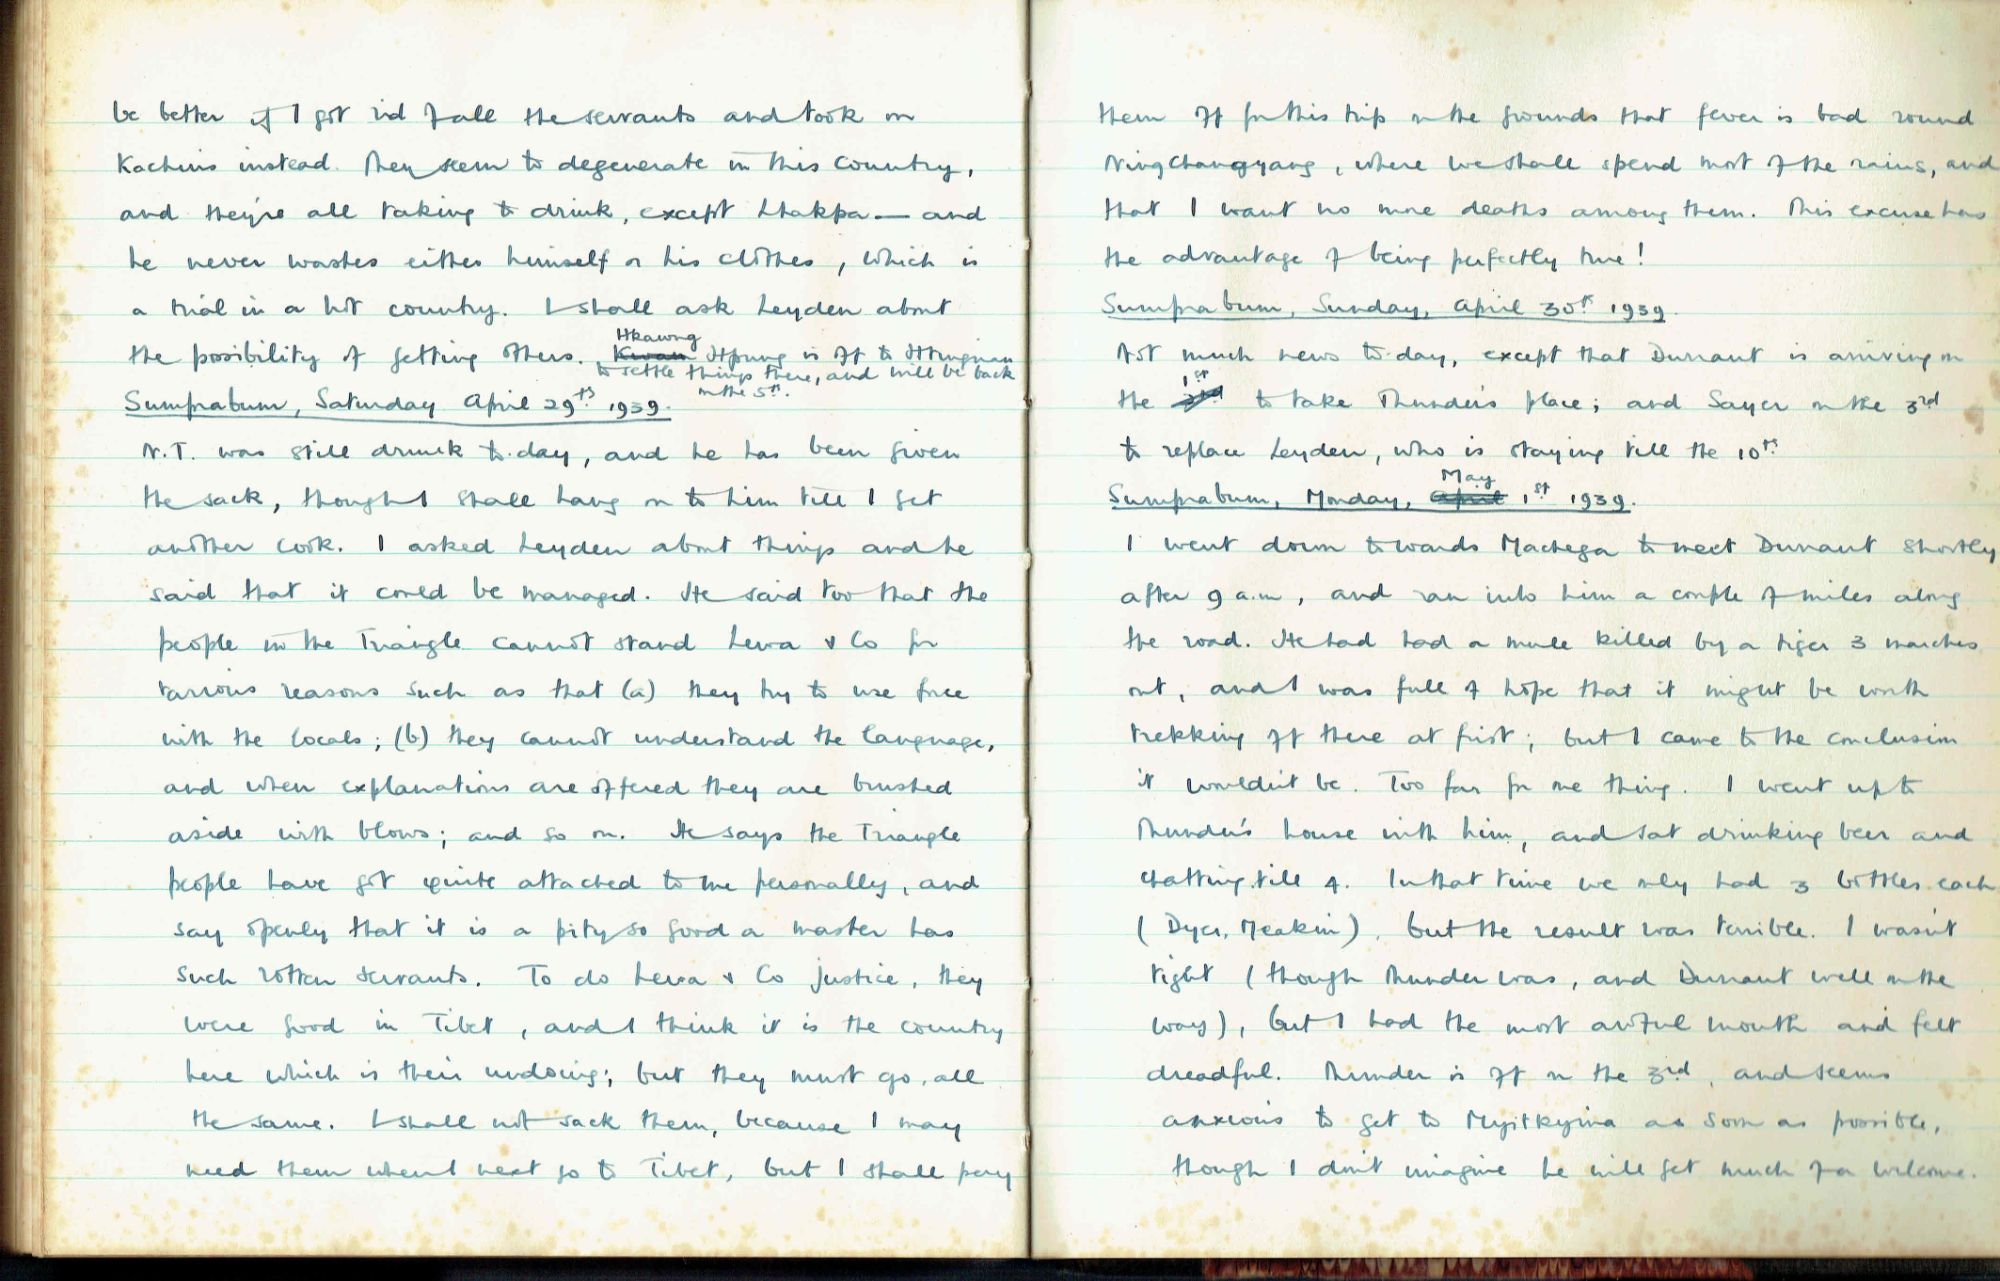 be better if I got rid of all the servants and took on
Kachins instead. They seem to degenerate in this country,
and they're all taking to drink, except Lhakpa — and
he never washes either himself or his clothes, which is
a trial in a hot country. I shall ask Leyden about
the possibility of getting others. Kwan Hkawng Hpung is off to Htingnan
to settle things there, and will be back
on the 5th.
Sumprabum, Saturday April 29th 1939.
N.T. was still drunk to-day, and he has been given
the sack, though I shall hang on to him till I get
another cook. I asked Leyden about things and he
said that it could be managed. He said too that the
people in the Triangle cannot stand Lewa & Co for
various reasons such as that (a) they try to use force
with the locals; (b) they cannot understand the language,
and when explanations are offered they are brushed
aside with blows; and so on. He says the Triangle
people have got quite attached to me personally, and
say openly that it is a pity so good a master has
such rotten servants. To do Lewa & Co justice, they
were good in Tibet, and I think it is the country
here which is their undoing; but they must go, all
the same. I shall not sack them, because I may
need them when I next go to Tibet, but I shall pay
them off for this trip on the grounds that fever is bad round
Ningchangyang, where we shall spend most of the rains, and
that I want no more deaths among them. This excuse has
the advantage of being perfectly true!
Sumprabum, Sunday, April 30th 1939.
Not much news to-day, except that Durrant is arriving on
the 1st to take Thunder's place; and Sayer on the 3rd
to replace Leyden, who is staying till the 10th
Sumprabum, Monday, April May 1st 1939.
I went down towards Machega to meet Durrant shortly
after 9 a.m, and ran into him a couple of miles along
the road. He had had a mule killed by a tiger 3 marches
out, and I was full of hope that it might be worth
trekking off there at first; but I came to the conclusion
it wouldn't be. Too far for one thing. I went up to
Thunder's house with him, and sat drinking beer and
chatting till 4. In that time we only had 3 bottles each
(Dyer, Meakin), but the result was terrible. I wasn't
tight (though Thunder was, and Durrant well on the
way), but I had the most awful mouth and felt
dreadful. Thunder is off on the 3rd, and seems
anxious to get to Myitkyina as soon as possible,
though I don't imagine he will get much of a welcome.